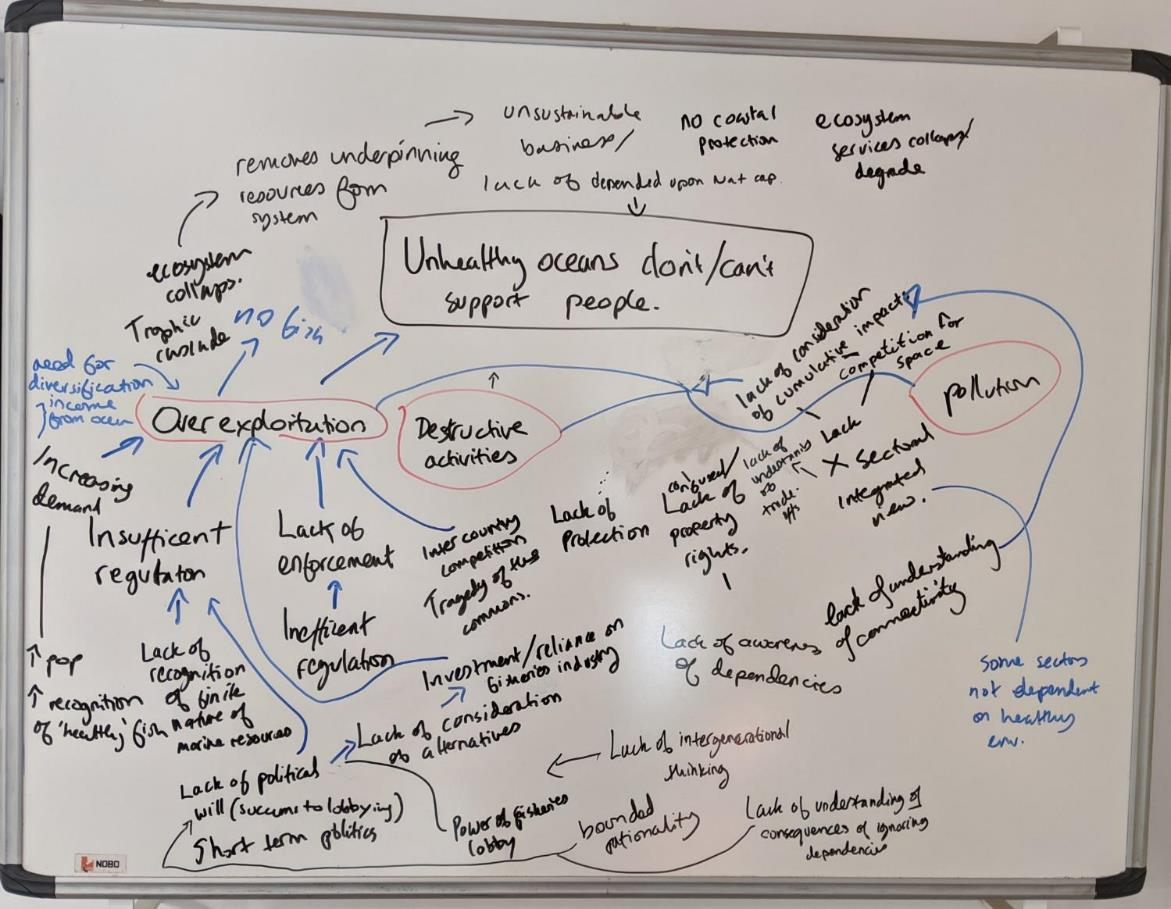 unsustainable
business/
lack of depended upon nat cap.
no coastal
protection
ecosystem
services collapse/
degrade
removes underpinning
resources from
system
ecosystem
collaps.
Trophic
cascade
no fish
Unhealthy oceans don't/can't
support people.
need for
diversification
income
from ocean
Overexploitation
Destructive
activities
lack of consideration
of cumulative impacts
competition for
space
pollution
Increasing
demand
Insufficent
regulaton
Lack of
enforcement
Inefficent
regulation
Inter country
competition
Tragedy of the
commons.
Lack of
Protection
confused/
Lack of
property
rights.
lack of
of
trade
Lack
X sectoral
integrated
lack of understanding
of connectivity
Lack of awareness
of dependencies
some sectors
not dependent
on healthy
env.
↑ pop
↑ recognition
of 'healthy' fish
Lack of
recognition
of finite
nature of
marine resources
Investment/reliance on
fisheries industry
Lack of consideration
of alternatives
Lack of political
will (succums to lobbying)
Short term politics
Power of fisheries
lobby
Lack of intergenerational
thinking
bounded
rationality
Lack of understanding of
consequences of ignoring
dependencies
NOBO